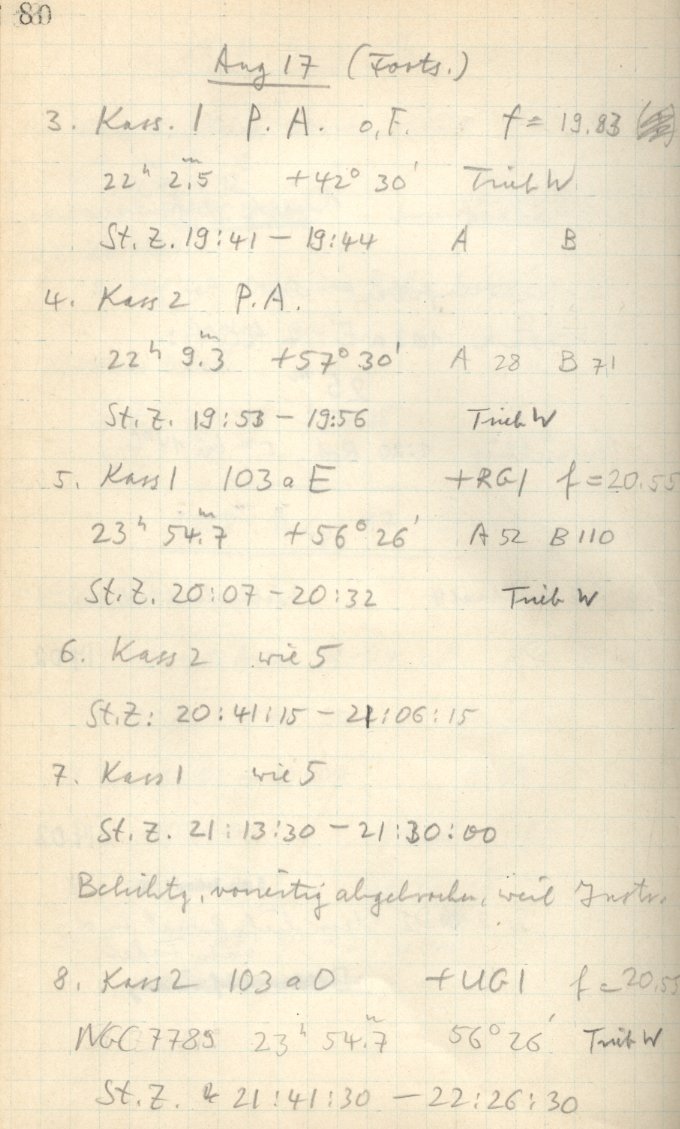 80
Aug 17 (Forts.)
3. Kass. 1 P. A. o, F. f = 19.83
22ʰ 2ᵐ.5 +42° 30' Trieb W
St. Z. 19:41 – 19:44 A B
4. Kass 2 P. A.
22ʰ 9ᵐ.3 +57° 30' A 28 B 71
St. Z. 19:53 – 19:56 Trieb W
5. Kass 1 103 a E +RG1 f = 20.55
23ʰ 54ᵐ.7 +56° 26' A 52 B 110
St. Z. 20:07 – 20:32 Trieb W
6. Kass 2 wie 5
St. Z: 20:41:15 – 21:06:15
7. Kass 1 wie 5
St. Z. 21:13:30 – 21:30:00
Belichtg, vorzeitig abgebrochen, weil Instr.
8. Kass 2 103 a O +UG1 f = 20.55
NGC 7789 23ʰ 54ᵐ.7 56° 26' Trieb W
St. Z. 21:41:30 – 22:26:30